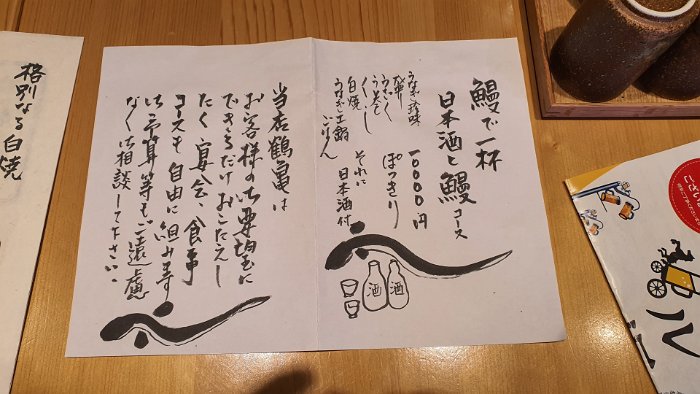 鰻で一杯
日本酒と鰻コース
うなぎ珍味
お造り
うざく
うまき
くしし
白焼
うなぎ土鍋ごはん
一〇〇〇〇円
ぽっきり
それに
日本酒付
酒
酒
当店鶴亀は
お客様の御要望に
できるだけおこたえし
たく宴会、食事
コースも自由に組みます
御予算等もご遠慮
なく御相談して下さい。
格別なる白焼
ござい